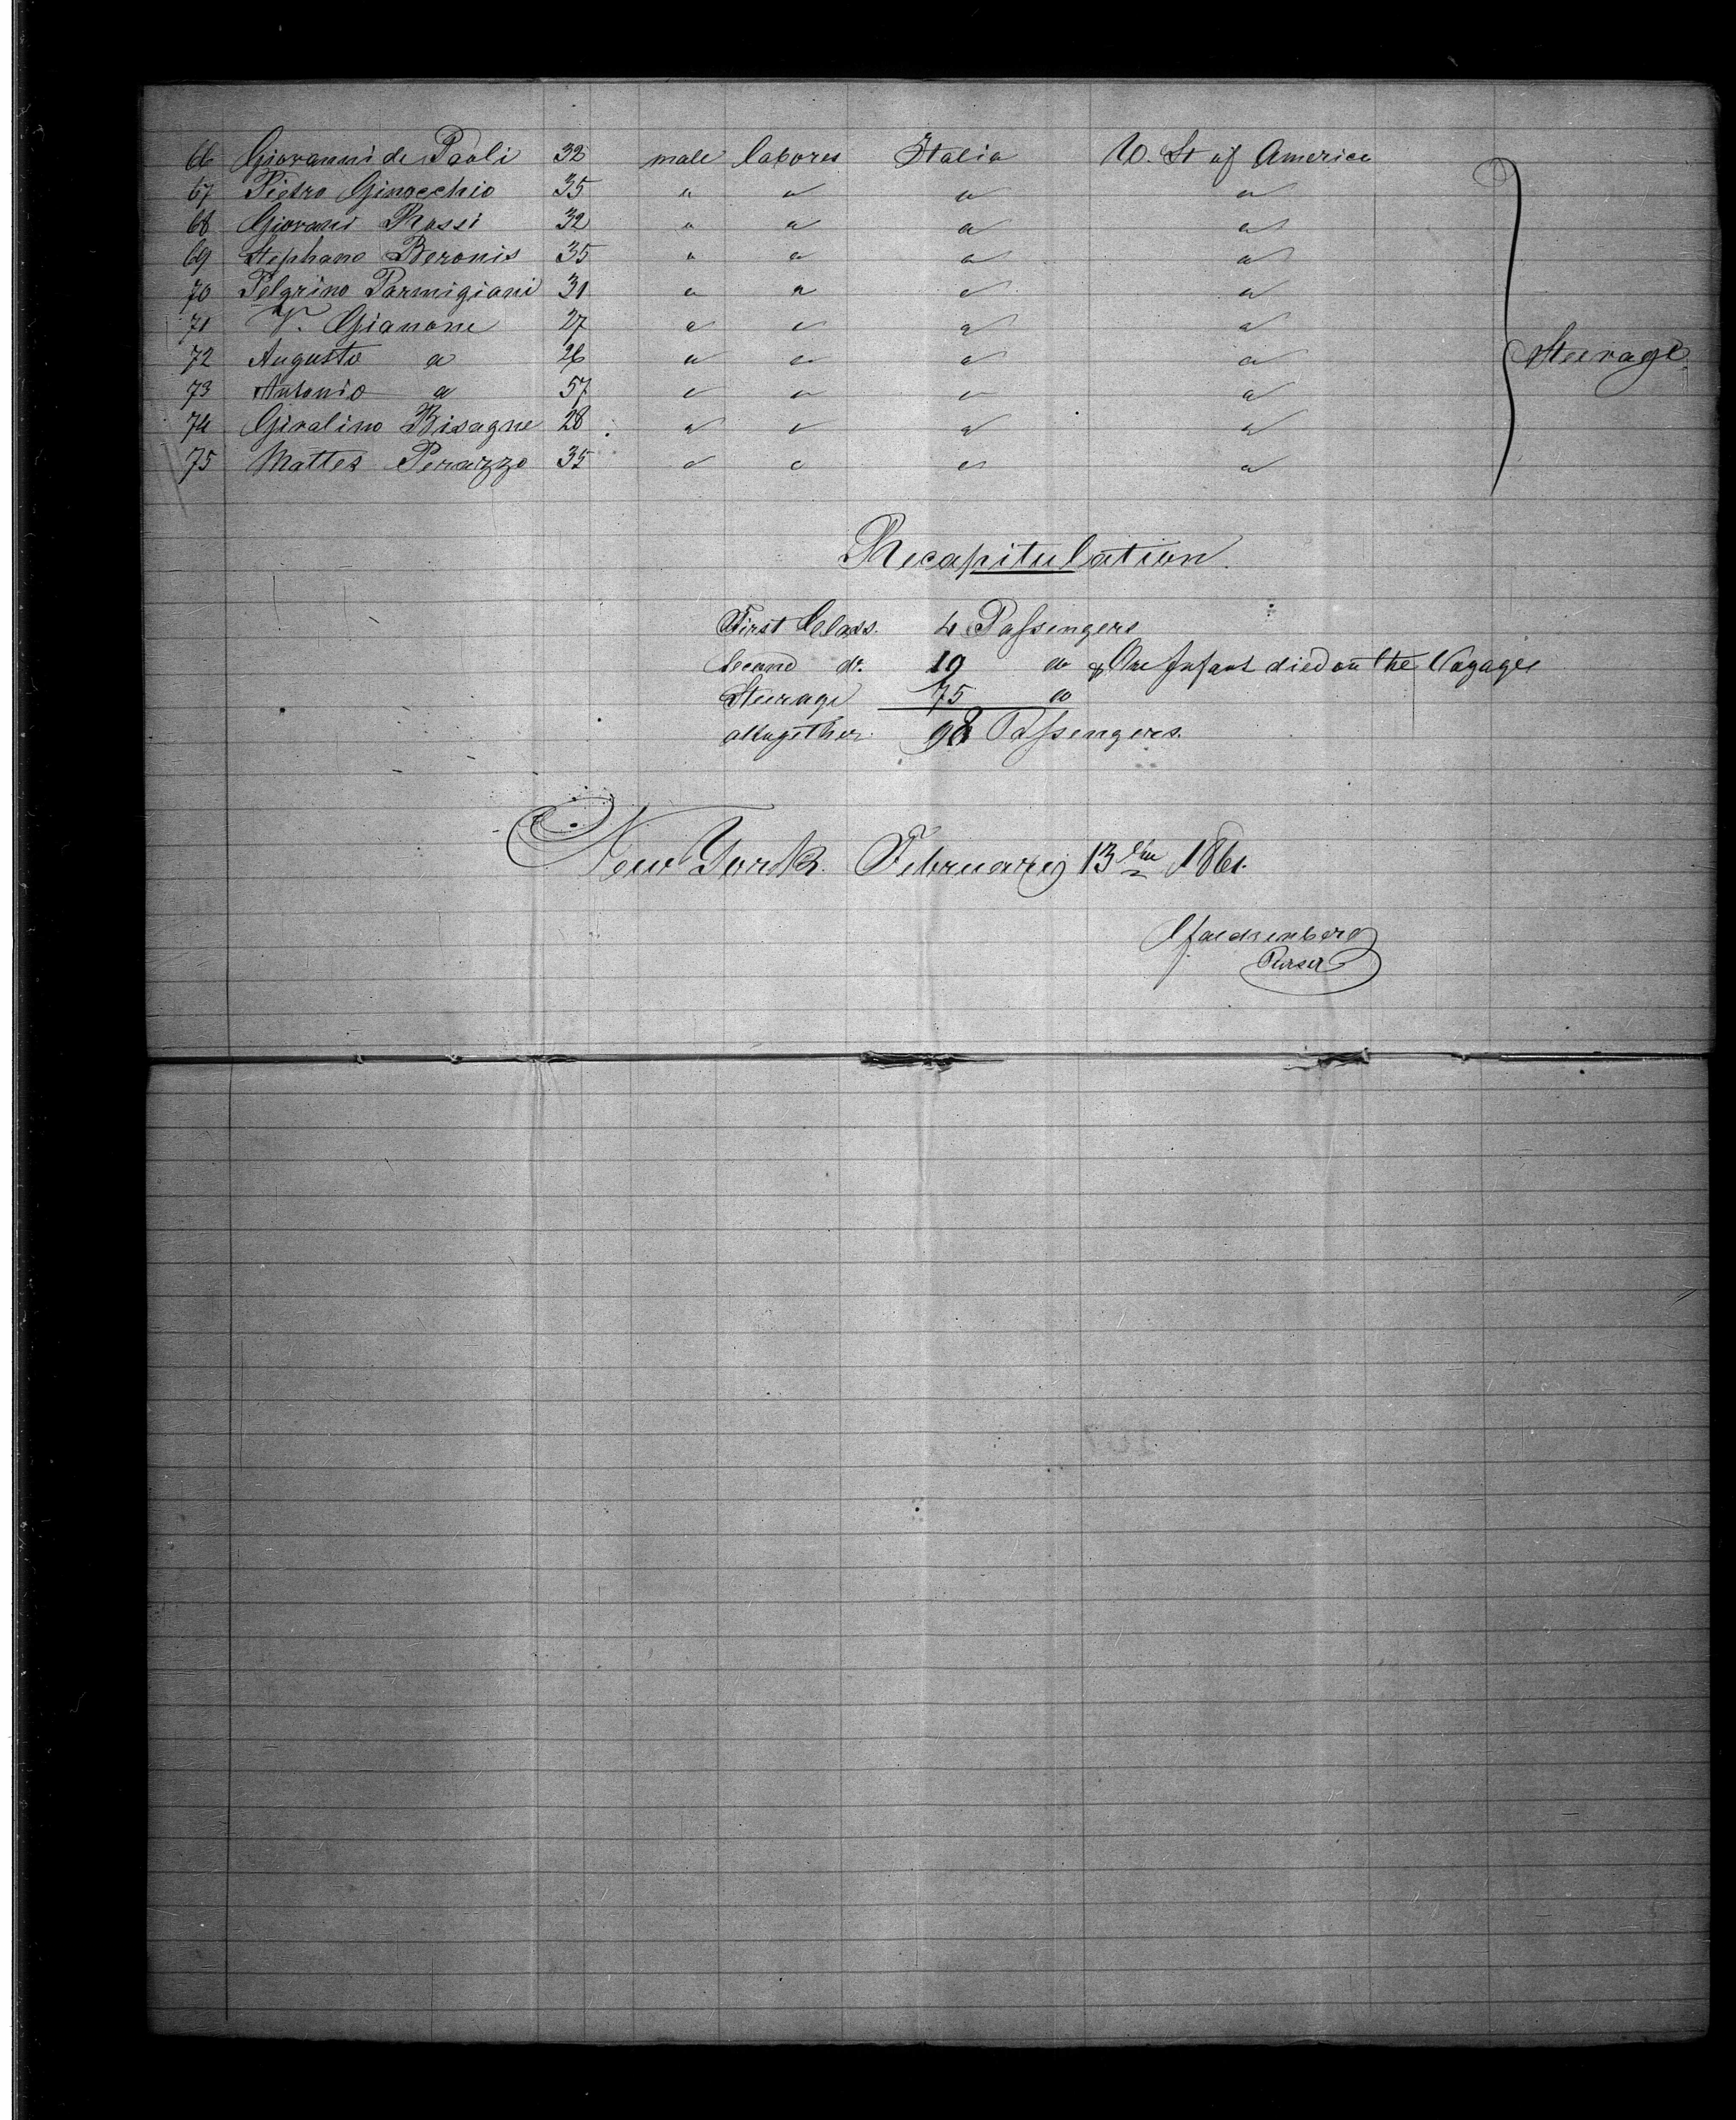 66 Giovanni de Paoli 32 male labores Italia U. St of America
67 Pietro Ginocchio 35 " " " "
68 Giovani Rossi 32 " " " "
69 Stephano Beronis 35 " " " "
70 Pelgrino Parmigiani 31 " " " "
71 V. Gianone 27 " " " "
72 Augusto " 26 " " " "
Steerage
73 Antonio " 57 " " " "
74 Giralino Bisagne 28 " " " "
75 Mattes Perazzo 35 " " " "
Recapitulation.
First Class. 4 Passengers
Second do. 19 do & One Infant died on the Voyage
Steerage 75 do
altogether. 98 Passengers.
New York. February 13th 1861.
Purser